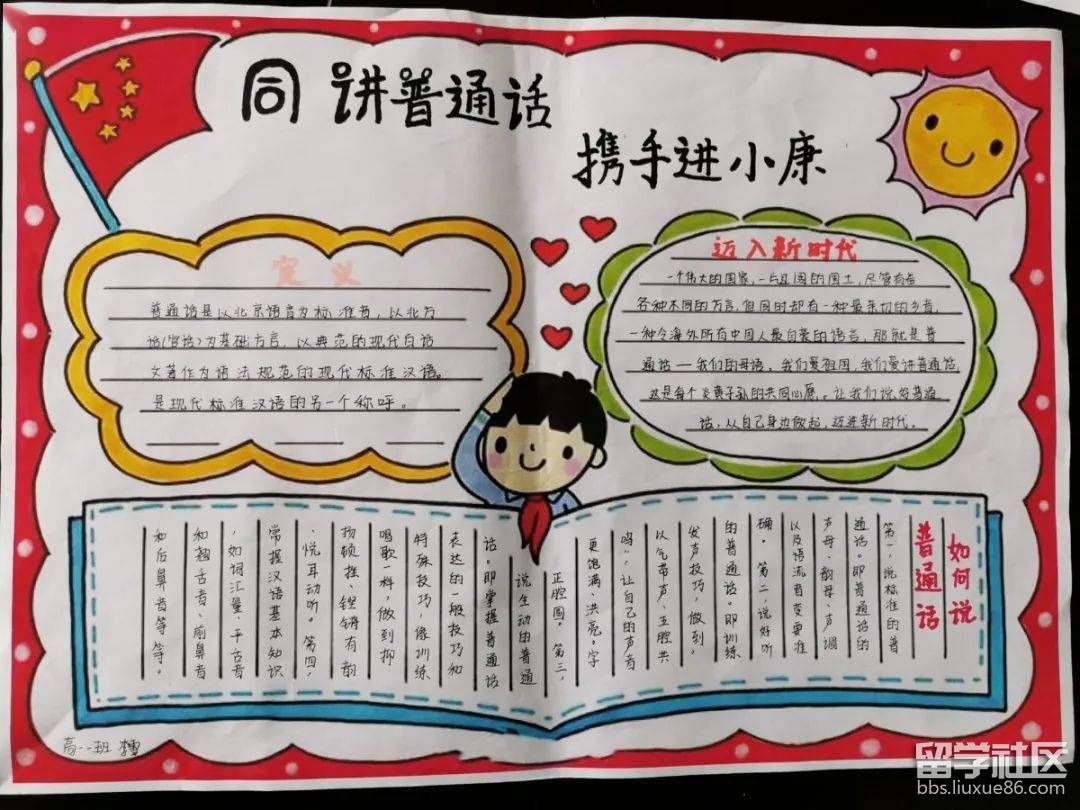 同讲普通话
携手进小康
定义
普通话是以北京语音为标准音，以北方
话(官话)为基础方言，以典范的现代白话
文著作为语法规范的现代标准汉语。
是现代标准汉语的另一个称呼。
迈入新时代
一个伟大的国家，一片辽阔的国土，尽管有着
各种不同的方言，但同时却有一种最亲切的乡音，
一种令海外所有中国人最自豪的语言，那就是普
通话——我们的母语。我们爱祖国，我们爱讲普通话，
这是每个炎黄子孙的共同心愿。让我们说好普通
话，从自己身边做起，迈进新时代。
如何说
普通话
第一，说标准的普
通话。即普通话的
声母、韵母、声调
以及语流音变要准
确。第二，说好听
的普通话。即训练
发声技巧，做到，
以气带声、五腔共
鸣，让自己的声音
更饱满、洪亮，字
正腔圆。第三，
说生动的普通
话。即掌握普通话
表达的一般技巧和
特殊技巧，像训练
唱歌一样，做到抑
扬顿挫、铿锵有韵
、悦耳动听。第四，
掌握汉语基本知识
，如词汇量、平舌音
和翘舌音、前鼻音
和后鼻音等等。
高一·一班 李雪
留学社区
bbs.liuxue86.com